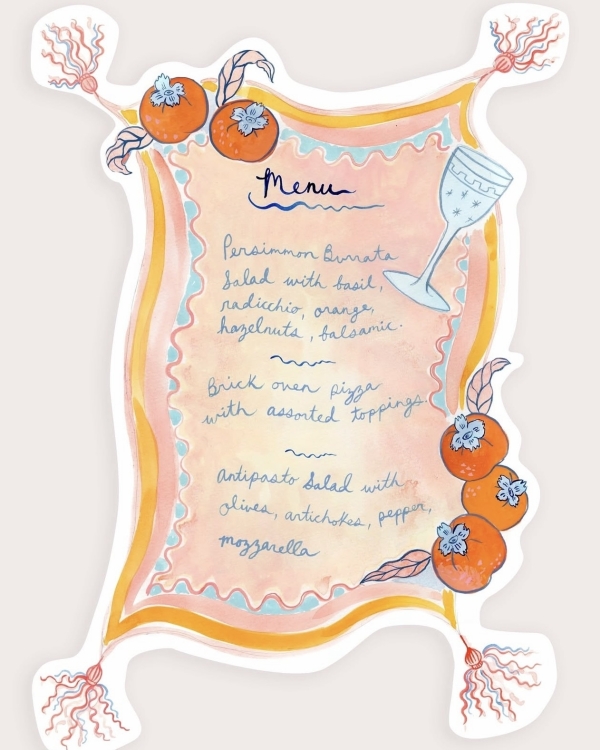 Menu
Persimmon Burrata
Salad with basil,
radicchio, orange,
hazelnuts, balsamic.
Brick oven pizza
with assorted toppings.
Antipasto Salad with
olives, artichokes, pepper,
mozzarella